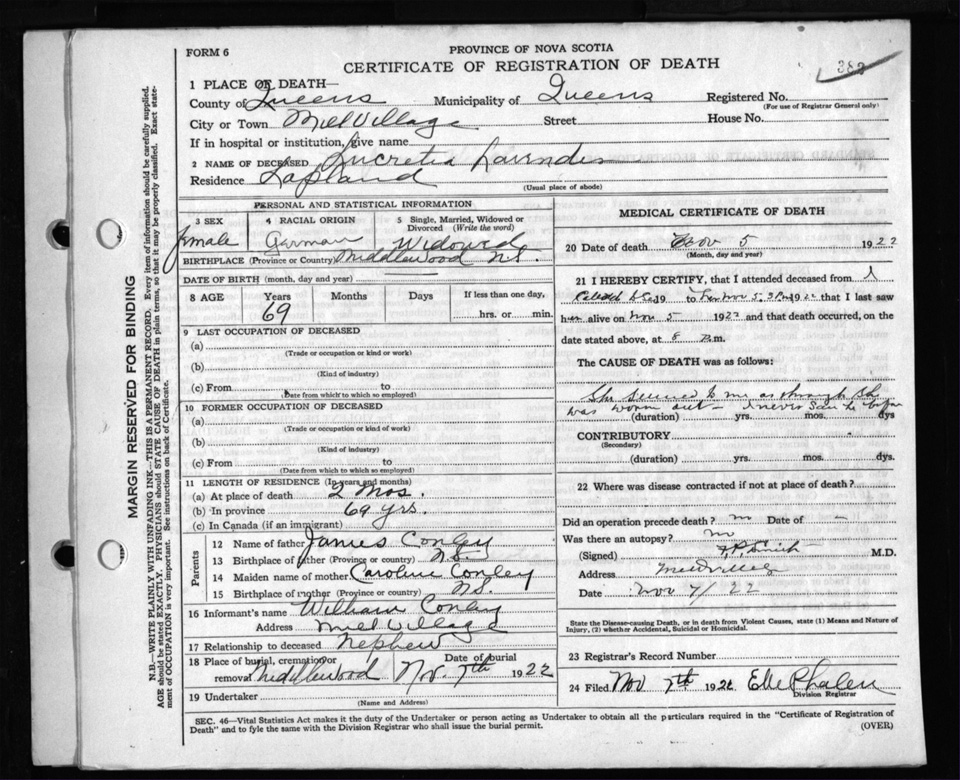 FORM 6
PROVINCE OF NOVA SCOTIA
CERTIFICATE OF REGISTRATION OF DEATH
382
1 PLACE OF DEATH—
County of Queens Municipality of Queens Registered No.
(For use of Registrar General only)
City or Town Mill Village Street House No.
If in hospital or institution, give name
2 NAME OF DECEASED Lucretia Lavender
Residence Lapland
(Usual place of abode)
PERSONAL AND STATISTICAL INFORMATION
3 SEX 4 RACIAL ORIGIN 5 Single, Married, Widowed or Divorced (Write the word)
female German Widowed
BIRTHPLACE (Province or Country) Middlewood N.S.
DATE OF BIRTH (month, day and year)
8 AGE Years Months Days If less than one day,
69 hrs. or min.
9 LAST OCCUPATION OF DECEASED
(a)
(Trade or occupation or kind or work)
(b)
(Kind of industry)
(c) From to
(Date from which to which so employed)
10 FORMER OCCUPATION OF DECEASED
(a)
(Trade or occupation or kind of work)
(b)
(Kind of industry)
(c) From to
(Date from which to which so employed)
11 LENGTH OF RESIDENCE (In years and months)
(a) At place of death 2 Mos.
(b) In province 69 yrs.
(c) In Canada (if an immigrant)
Parents
12 Name of father James Conley
13 Birthplace of father (Province or country) N.S.
14 Maiden name of mother Caroline Conley
15 Birthplace of mother (Province or country) N.S.
16 Informant's name William Conley
Address Mill Village
17 Relationship to deceased Nephew
18 Place of burial, cremation or removal Middlewood Date of burial Nov. 7th 1922
19 Undertaker
(Name and Address)
MEDICAL CERTIFICATE OF DEATH
20 Date of death Nov 5 1922
(Month, day and year)
21 I HEREBY CERTIFY, that I attended deceased from I
19 to her Nov 5 1922 that I last saw
her alive on Nov 5 1922 and that death occurred, on the
date stated above, at 8 P.m.
The CAUSE OF DEATH was as follows:
She seemed to me as though she
was worn out — I never saw her before
(duration) yrs. mos. dys
CONTRIBUTORY
(Secondary)
(duration) yrs. mos. dys.
22 Where was disease contracted if not at place of death?
Did an operation precede death? no Date of —
Was there an autopsy? no
(Signed) Smith M.D.
Address Mill Village
Date Nov 7/22
State the Disease-causing Death, or in death from Violent Causes, state (1) Means and Nature of
Injury, (2) whether Accidental, Suicidal or Homicidal.
23 Registrar's Record Number
24 Filed Nov 7th 1922 Phalen
Division Registrar
SEC. 46—Vital Statistics Act makes it the duty of the Undertaker or person acting as Undertaker to obtain all the particulars required in the "Certificate of Registration of
Death" and to fyle the same with the Division Registrar who shall issue the burial permit. (OVER)
MARGIN RESERVED FOR BINDING
N.B.—WRITE PLAINLY WITH UNFADING INK—THIS IS A PERMANENT RECORD. Every item of information should be carefully supplied.
AGE should be stated EXACTLY. PHYSICIANS should STATE CAUSE OF DEATH in plain terms, so that it may be properly classified. Exact state-
ment of OCCUPATION is very important. See instructions on back of Certificate.